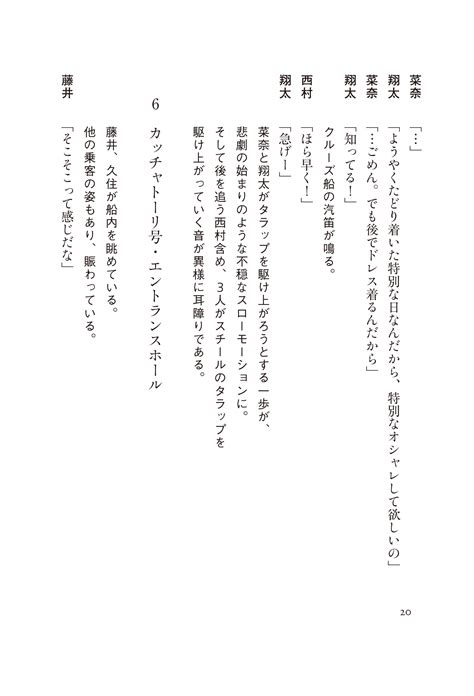 菜奈 「…」
翔太 「ようやくたどり着いた特別な日なんだから、特別なオシャレして欲しいの」
菜奈 「…ごめん。でも後でドレス着るんだから」
翔太 「知ってる！」
クルーズ船の汽笛が鳴る。
西村 「ほら早く！」
翔太 「急げー」
菜奈と翔太がタラップを駆け上がろうとする一歩が、
悲劇の始まりのような不穏なスローモーションに。
そして後を追う西村含め、3人がスチールのタラップを
駆け上がっていく音が異様に耳障りである。
6 カッチャトーリ号・エントランスホール
藤井、久住が船内を眺めている。
他の乗客の姿もあり、賑わっている。
藤井 「そこそこって感じだな」
20